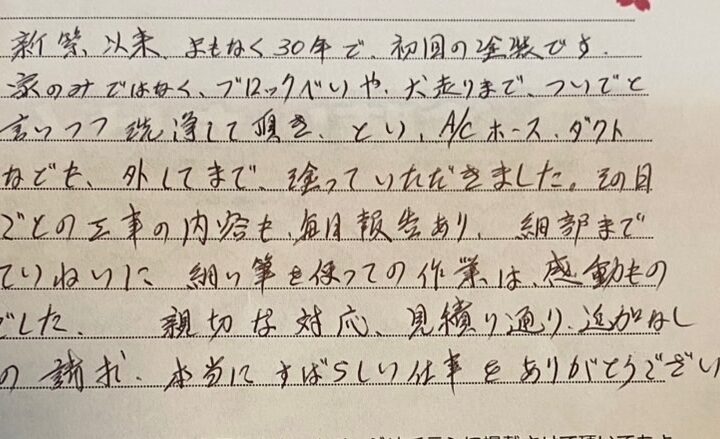 新築以来、まもなく30年で、初回の塗装です。
家のみではなく、ブロックべいや、犬走りまで、ついでと
言いつつ洗浄して頂き、とい、A/Cホース、ダクト
なども、外してまで、塗っていただきました。その日
ごとの工事の内容も、毎日報告あり、細部まで
ていねいに細い筆を使っての作業は、感動もの
でした。 親切な対応、見積り通り、追加なし
の請求、本当にすばらしい仕事をありがとうござい